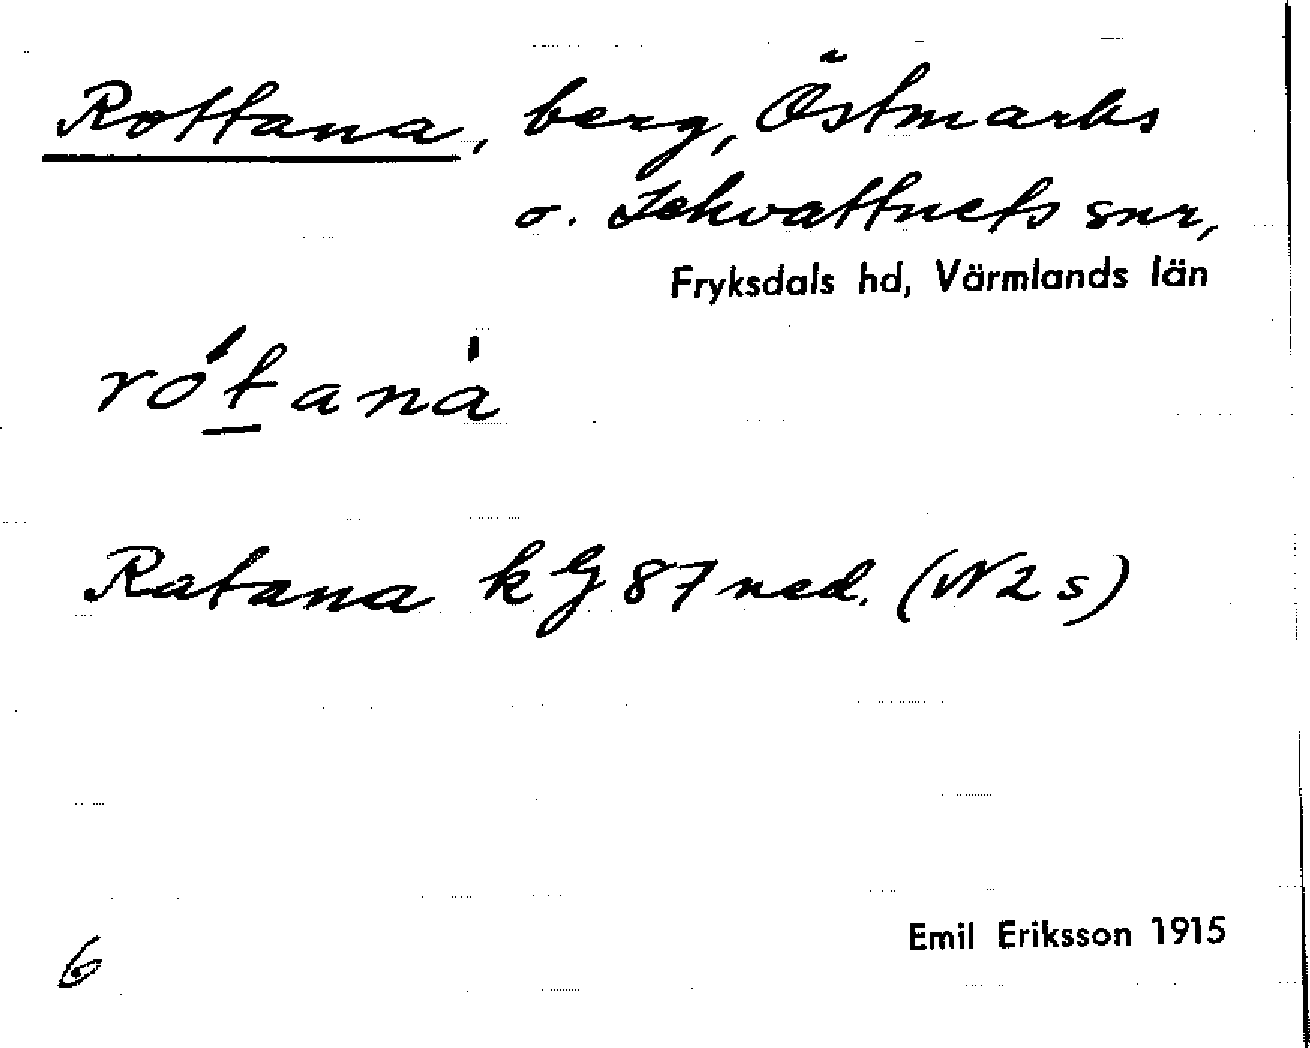 Rottana, berg, Östmarks
o. Lekvattnets snr,
Fryksdals hd, Värmlands län
ró́tanà
Ratana k G 87 ned. (N2 s)
6
Emil Eriksson 1915